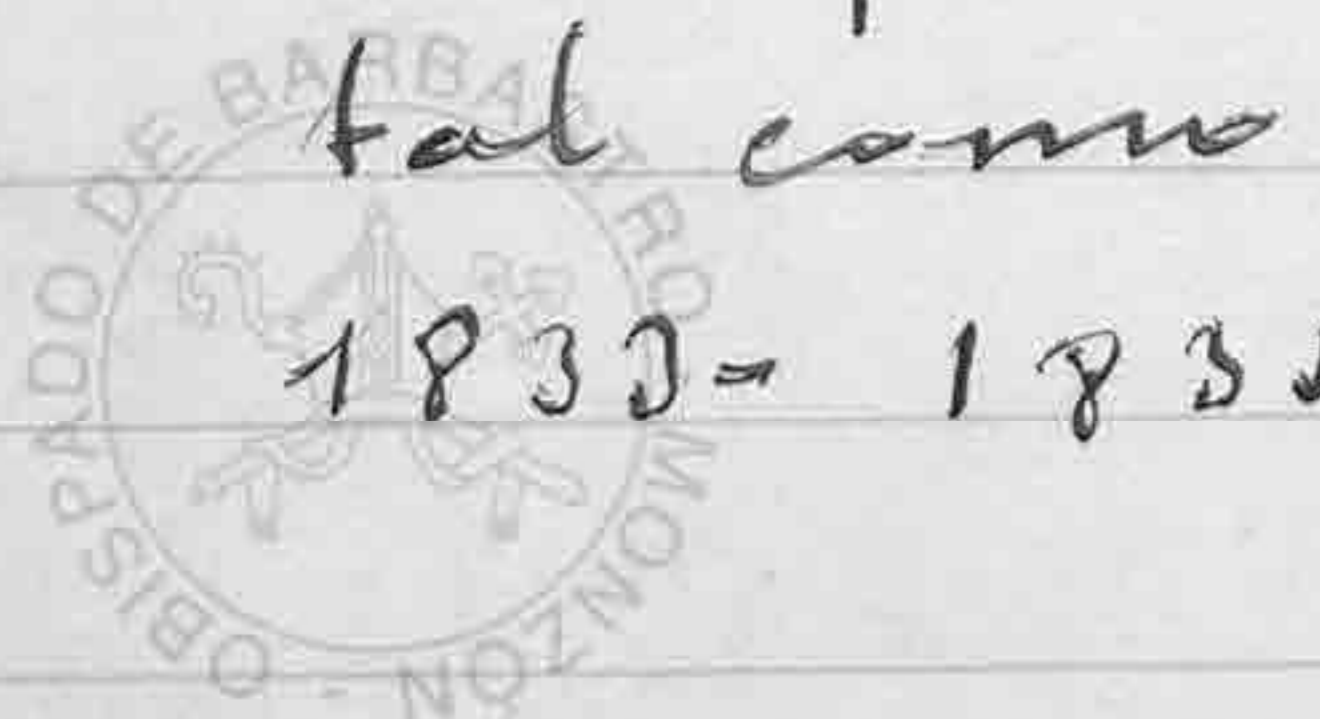 tal como
1833- 183
OBISPADO DE BARBASTRO MONZÓN